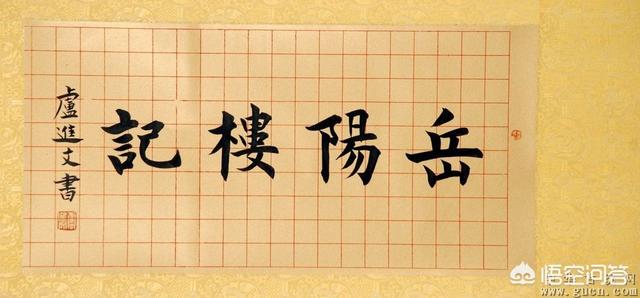 岳陽樓記
盧進文書
悟空问答
www.gucn.com